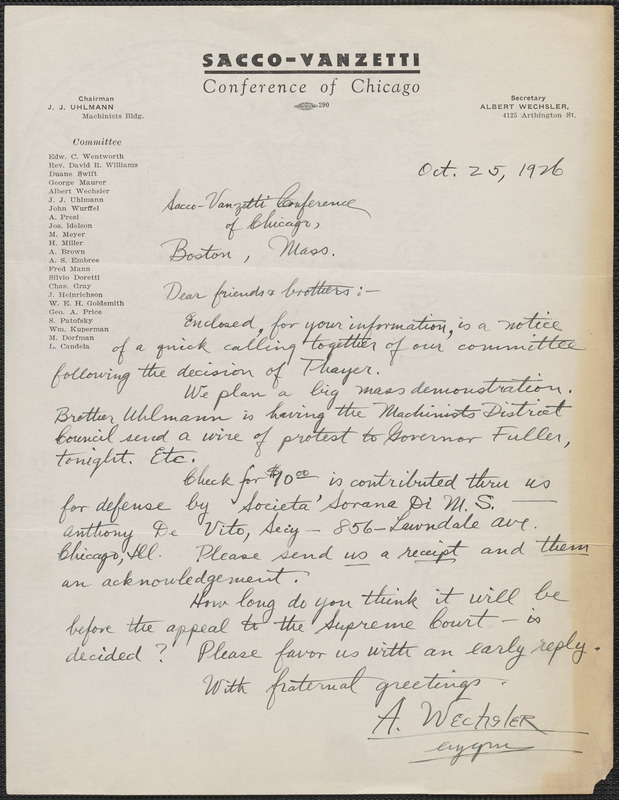 SACCO-VANZETTI
Conference of Chicago
290
Chairman
J. J. UHLMANN
Machinists Bldg.
Secretary
ALBERT WECHSLER,
4125 Arthington St.
Committee
Edw. C. Wentworth
Rev. David R. Williams
Duane Swift
George Maurer
Albert Wechsler
J. J. Uhlmann
John Wurffel
A. Presi
Jos. Idelson
M. Meyer
H. Miller
A. Brown
A. S. Embree
Fred Mann
Silvio Doretti
Chas. Gray
J. Heinrichson
W. E. H. Goldsmith
Geo. A. Price
S. Patofsky
Wm. Kuperman
M. Dorfman
L. Candela
Oct. 25, 1926
Sacco-Vanzetti Conference
of Chicago,
Boston, Mass.
Dear friends & brothers:-
Enclosed, for your information, is a notice
of a quick calling together of our committee
following the decision of Thayer.
We plan a big mass demonstration.
Brother Uhlmann is having the Machinists District
Council send a wire of protest to Governor Fuller,
tonight. Etc.
Check for $10.00 is contributed thru us
for defense by Societa' Sorana Di M.S. —
Anthony De Vito, Secy — 856 - Lawndale ave.
Chicago, Ill. Please send us a receipt and them
an acknowledgement.
How long do you think it will be
before the appeal to the Supreme Court — is
decided? Please favor us with an early reply.
With fraternal greetings.
A. WECHSLER